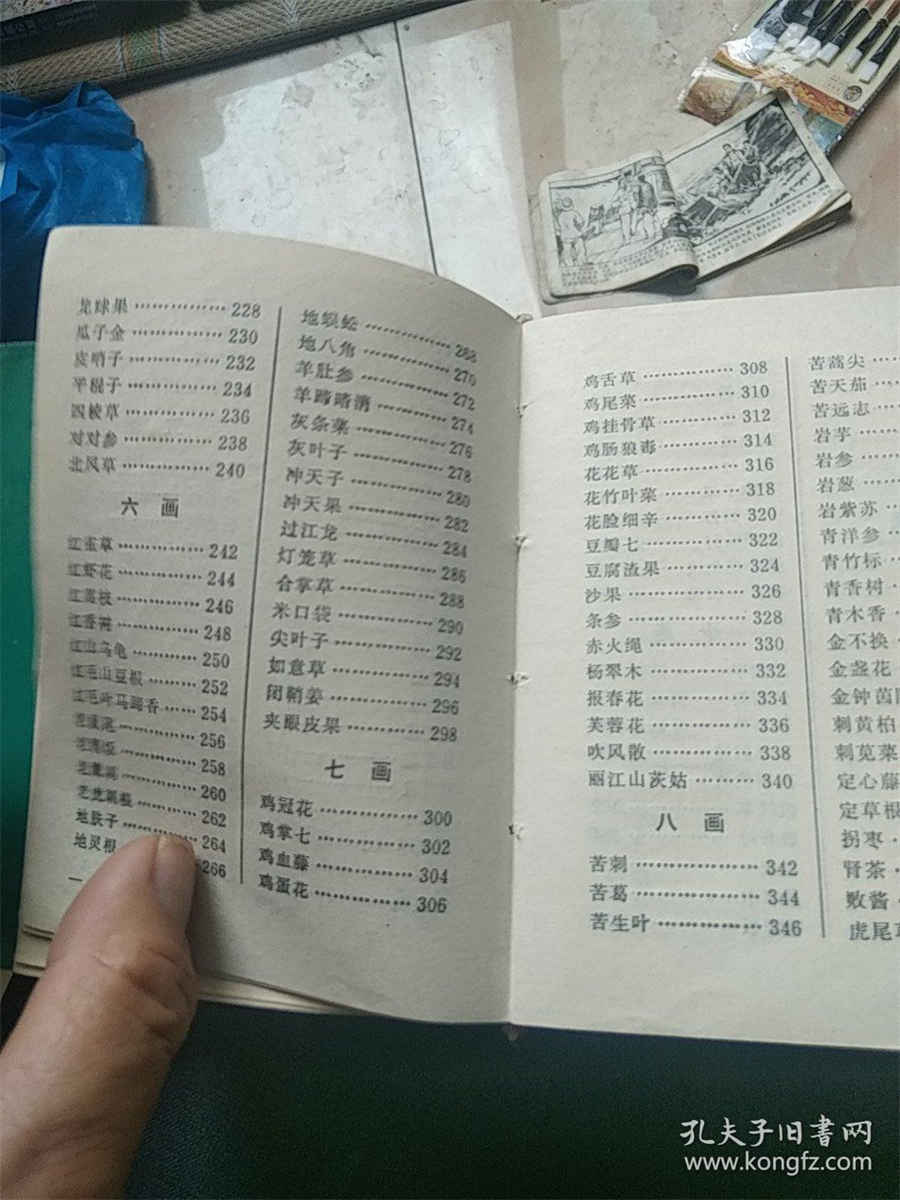 龙球果 228
瓜子金 230
皮哨子 232
平棍子 234
四棱草 236
对对参 238
北风草 240
六 画
红雀草 242
红虾花 244
红蒿枝 246
红香树 248
红山乌龟 250
红毛山豆根 252
红毛叶马蹄香 254
256
258
260
老虎跳 262
地肤子 264
地灵根 266
地蜈蚣 268
地八角 270
羊肚参 272
羊蹄暗消 274
灰条菜 276
灰叶子 278
冲天子 280
冲天果 282
过江龙 284
灯笼草 286
合掌草 288
米口袋 290
尖叶子 292
如意草 294
闭鞘姜 296
夹眼皮果 298
七 画
鸡冠花 300
鸡掌七 302
鸡血藤 304
鸡蛋花 306
鸡舌草 308
鸡尾菜 310
鸡挂骨草 312
鸡肠狼毒 314
花花草 316
花竹叶菜 318
花脸细辛 320
豆瓣七 322
豆腐渣果 324
沙果 326
条参 328
赤火绳 330
杨翠木 332
报春花 334
芙蓉花 336
吹风散 338
丽江山茨姑 340
八 画
苦刺 342
苦葛 344
苦生叶 346
苦蒿尖
苦天茄
苦远志
岩芋
岩参
岩葱
岩紫苏
青洋参
青竹标
青香树
青木香
金不换
金盏花
金钟茵
刺黄柏
刺苋菜
定心藤
定草根
拐枣
肾茶
败酱
虎尾
孔夫子旧书网
www.kongfz.com